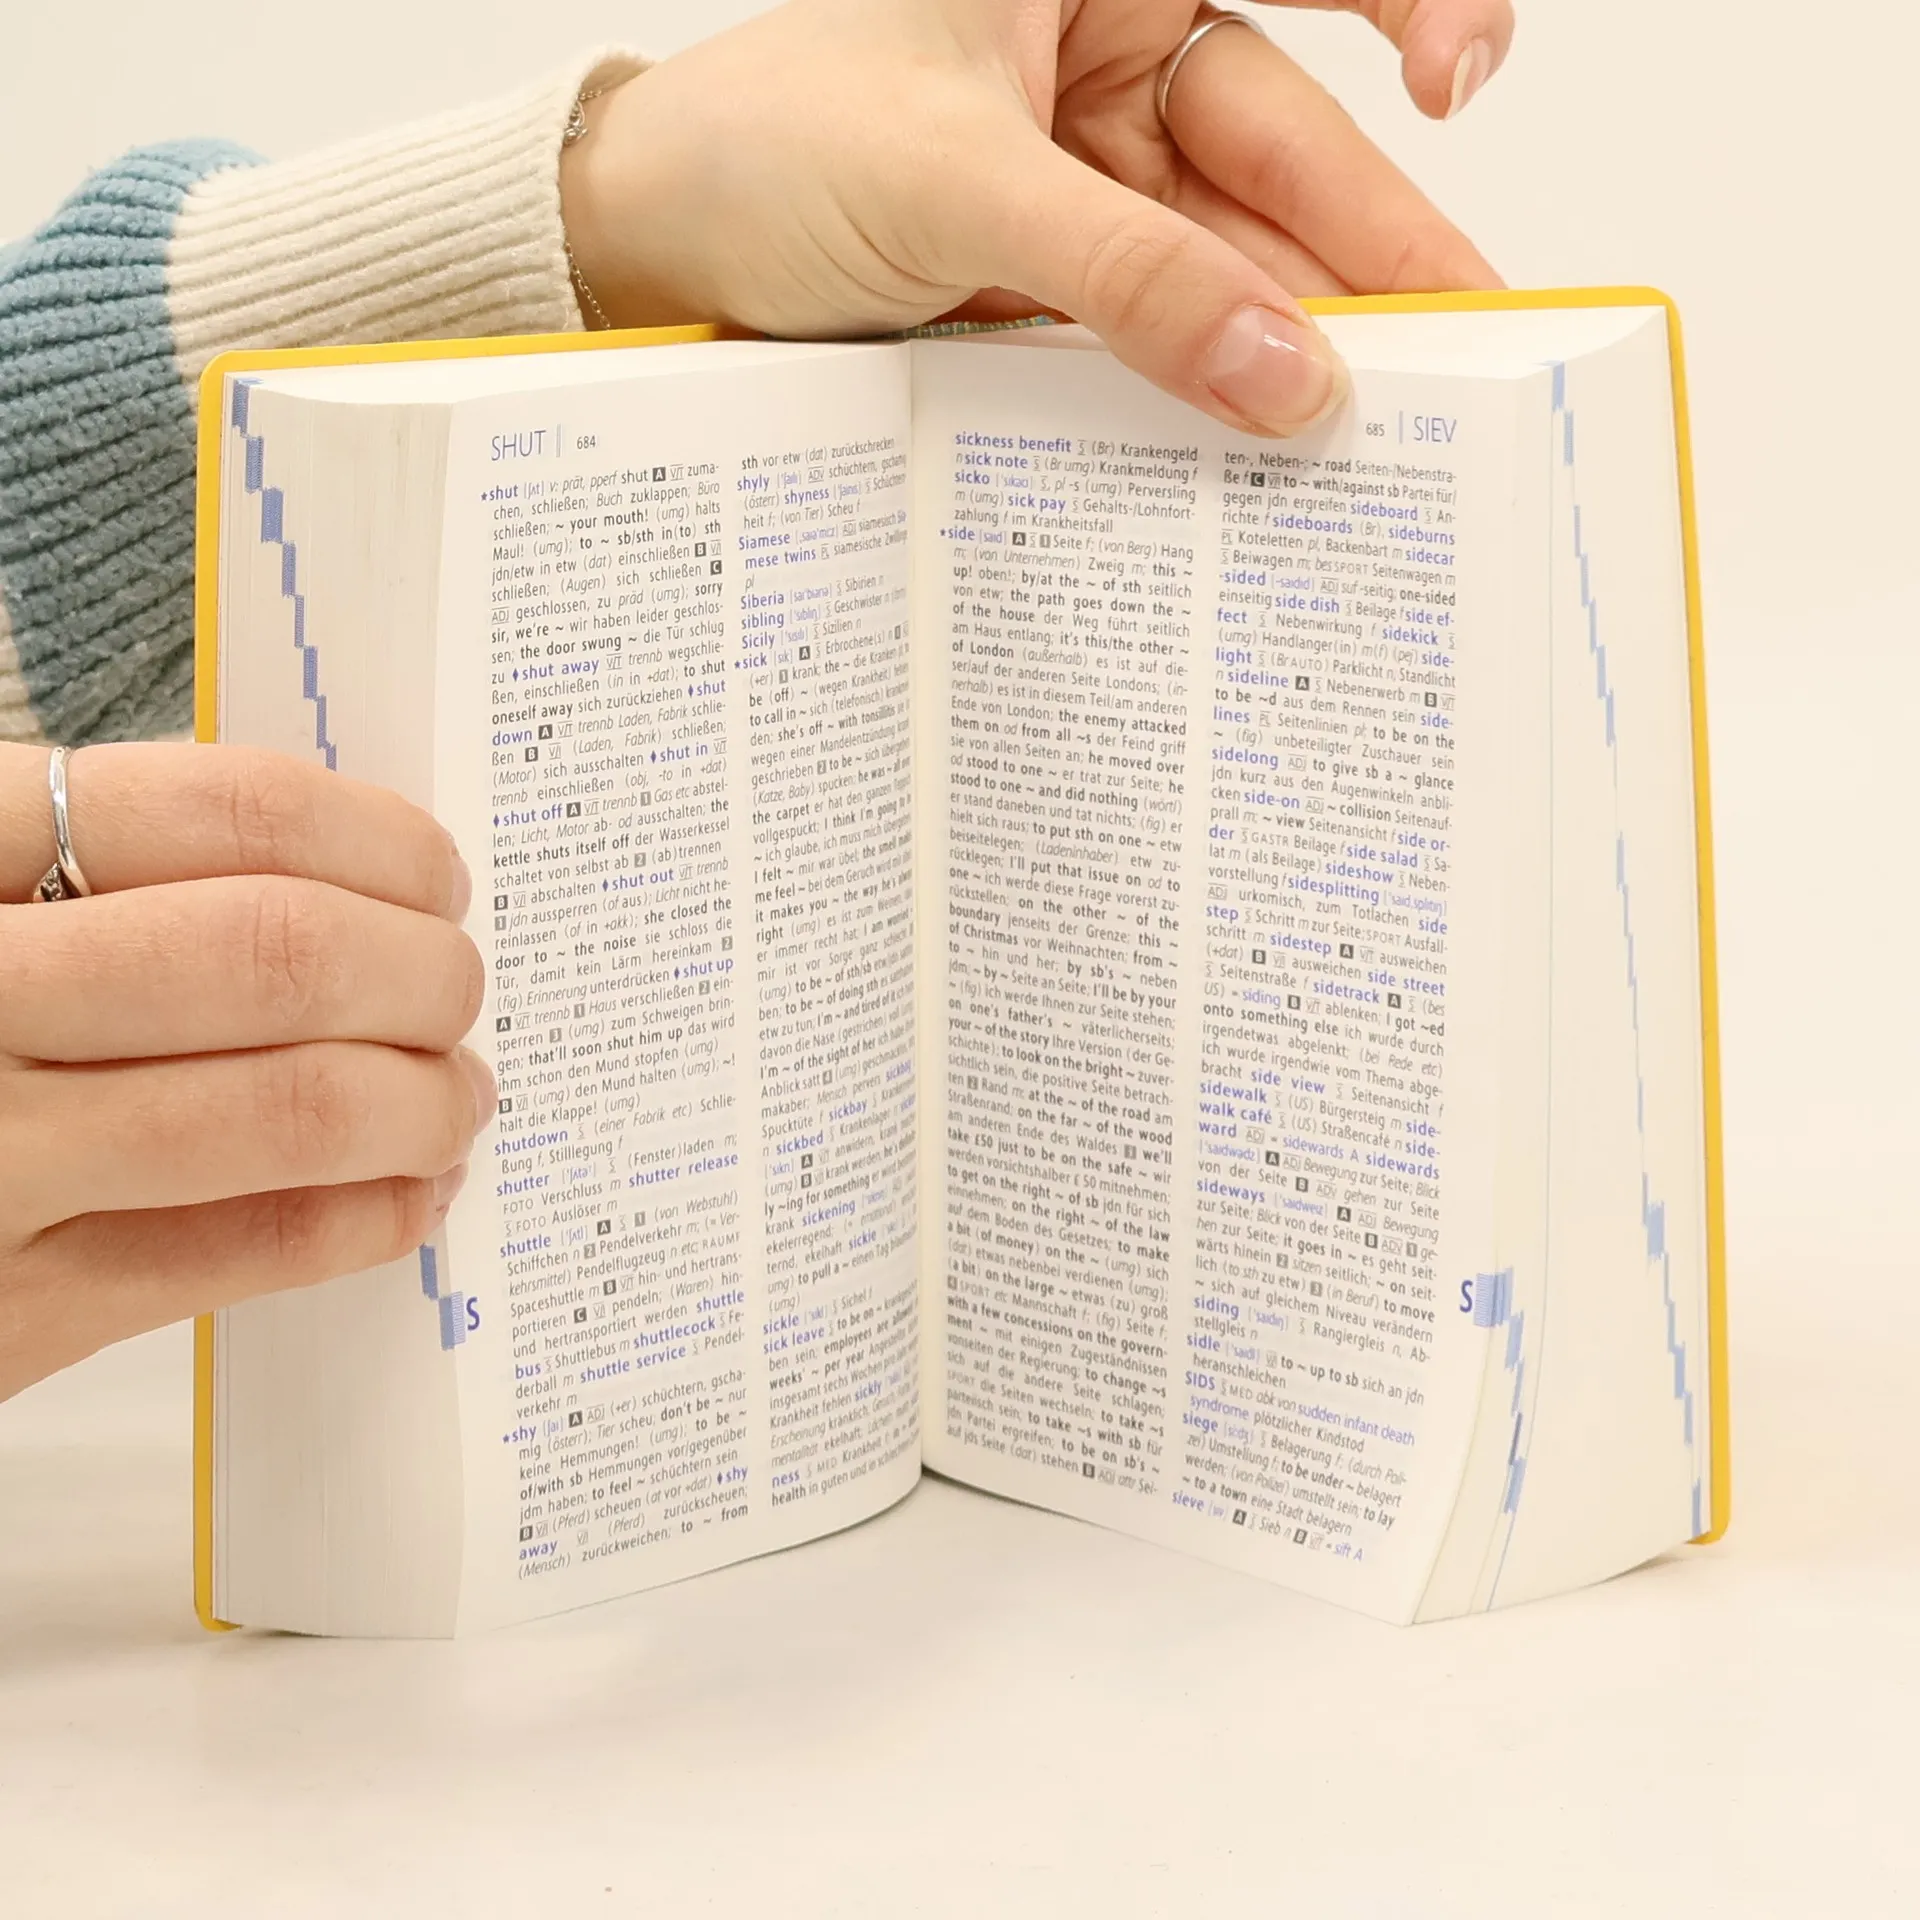 SHUT | 684
★shut [ʃʌt] v: prät, pperf shut A V/T zuma-
chen, schließen; Buch zuklappen; Büro
schließen; ~ your mouth! (umg) halts
Maul! (umg); to ~ sb/sth in(to) sth
jdn/etw in etw (dat) einschließen B V/I
schließen; (Augen) sich schließen C
ADJ geschlossen, zu präd (umg); sorry
sir, we're ~ wir haben leider geschlos-
sen; the door swung ~ die Tür schlug
zu ♦shut away V/T trennb wegschlie-
ßen, einschließen (in in +dat); to shut
oneself away sich zurückziehen ♦shut
down A V/T trennb Laden, Fabrik schlie-
ßen B V/I (Laden, Fabrik) schließen;
(Motor) sich ausschalten ♦shut in V/T
trennb einschließen (obj, -to in +dat)
♦shut off A V/T trennb 1 Gas etc abstel-
len; Licht, Motor ab- od ausschalten; the
kettle shuts itself off der Wasserkessel
schaltet von selbst ab 2 (ab)trennen
B V/I abschalten ♦shut out V/T trennb
1 jdn aussperren (of aus); Licht nicht he-
reinlassen (of in +akk); she closed the
door to ~ the noise sie schloss die
Tür, damit kein Lärm hereinkam 2
(fig) Erinnerung unterdrücken ♦shut up
A V/T trennb 1 Haus verschließen 2 ein-
sperren 3 (umg) zum Schweigen brin-
gen; that'll soon shut him up das wird
ihm schon den Mund stopfen (umg)
B V/I (umg) den Mund halten (umg); ~!
halt die Klappe! (umg)
shutdown S (einer Fabrik etc) Schlie-
ßung f, Stilllegung f
shutter ['ʃʌtəʳ] S (Fenster)laden m;
FOTO Verschluss m shutter release
S FOTO Auslöser m
shuttle ['ʃʌtl] A S 1 (von Webstuhl)
Schiffchen n 2 Pendelverkehr m; (= Ver-
kehrsmittel) Pendelflugzeug n etc; RAUMF
Spaceshuttle m B V/T hin- und hertrans-
portieren C V/I pendeln; (Waren) hin-
und hertransportiert werden shuttle
bus S Shuttlebus m shuttlecock S Fe-
derball m shuttle service S Pendel-
verkehr m
★shy [ʃaɪ] A ADJ (+er) schüchtern, gscha-
mig (österr); Tier scheu; don't be ~ nur
keine Hemmungen! (umg); to be ~
of/with sb Hemmungen vor/gegenüber
jdm haben; to feel ~ schüchtern sein
B V/I (Pferd) scheuen (at vor +dat) ♦shy
away V/I (Pferd) zurückscheuen;
(Mensch) zurückweichen; to ~ from
sth vor etw (dat) zurückschrecken
shyly ['ʃaɪlɪ] ADV schüchtern, gschamig
(österr) shyness ['ʃaɪnɪs] S Schüchtern-
heit f; (von Tier) Scheu f
Siamese [ˌsaɪə'miːz] ADJ siamesisch Sia-
mese twins PL siamesische Zwillinge
pl
Siberia [saɪ'bɪərɪə] S Sibirien n
sibling ['sɪblɪŋ] S Geschwister n
Sicily ['sɪsɪlɪ] S Sizilien n
★sick [sɪk] A S Erbrochene(s) n B
(+er) 1 krank; the ~ die Kranken pl; to
be (off) ~ (wegen Krankheit) fehlen
to call in ~ sich (telefonisch) krankmel-
den; she's off ~ with tonsillitis sie ist
wegen einer Mandelentzündung krank-
geschrieben 2 to be ~ sich übergeben
(Katze, Baby) spucken; he was ~ all over
the carpet er hat den ganzen Teppich
vollgespuckt; I think I'm going to be
~ ich glaube, ich muss mich übergeben
I felt ~ mir war übel; the smell makes
me feel ~ bei dem Geruch wird mir übel
it makes you ~ the way he's always
right (umg) es ist zum Weinen, dass
er immer recht hat; I am worried ~
mir ist vor Sorge ganz schlecht
(umg) to be ~ of sth/sb etw/jdn satt ha-
ben; to be ~ of doing sth es satthaben
etw zu tun; I'm ~ and tired of it ich habe
davon die Nase (gestrichen) voll (umg)
I'm ~ of the sight of her ich habe ihren
Anblick satt 4 (umg) geschmacklos,
makaber; Mensch pervers sickbag S
Spucktüte f sickbay S Krankenrevier
n sickbed S Krankenlager n sicken
['sɪkn] A V/T anwidern, krank machen
(umg) B V/I krank werden; he's definite-
ly ~ing for something er wird bestimmt
krank sickening ['sɪknɪŋ] ADJ
ekelerregend; (= emotional)
ternd, ekelhaft sickie ['sɪkɪ] S
umg) to pull a ~ einen Tag blaumachen
(umg)
sickle ['sɪkl] S Sichel f
sick leave S to be on ~ krankgeschrie-
ben sein; employees are allowed
weeks' ~ per year Angestellte
insgesamt sechs Wochen pro Jahr
Krankheit fehlen sickly
Erscheinung kränklich; Geruch,
mentalität ekelhaft; Lächeln matt
ness S MED Krankheit f; in ~
health in guten und in schlechten
S
685 | SIEV
sickness benefit S (Br) Krankengeld
n sick note S (Br umg) Krankmeldung f
sicko ['sɪkəʊ] S, pl -s (umg) Perversling
m (umg) sick pay S Gehalts-/Lohnfort-
zahlung f im Krankheitsfall
★side [saɪd] A S 1 Seite f; (von Berg) Hang
m; (von Unternehmen) Zweig m; this ~
up! oben!; by/at the ~ of sth seitlich
von etw; the path goes down the ~
of the house der Weg führt seitlich
am Haus entlang; it's this/the other ~
of London (außerhalb) es ist auf die-
ser/auf der anderen Seite Londons; (in-
nerhalb) es ist in diesem Teil/am anderen
Ende von London; the enemy attacked
them on od from all ~s der Feind griff
sie von allen Seiten an; he moved over
od stood to one ~ er trat zur Seite; he
stood to one ~ and did nothing (wörtl)
er stand daneben und tat nichts; (fig) er
hielt sich raus; to put sth on one ~ etw
beiseitelegen; (Ladeninhaber) etw zu-
rücklegen; I'll put that issue on od to
one ~ ich werde diese Frage vorerst zu-
rückstellen; on the other ~ of the
boundary jenseits der Grenze; this ~
of Christmas vor Weihnachten; from ~
to ~ hin und her; by sb's ~ neben
jdm; ~ by ~ Seite an Seite; I'll be by your
~ (fig) ich werde Ihnen zur Seite stehen;
on one's father's ~ väterlicherseits;
your ~ of the story Ihre Version (der Ge-
schichte); to look on the bright ~ zuver-
sichtlich sein, die positive Seite betrach-
ten 2 Rand m; at the ~ of the road am
Straßenrand; on the far ~ of the wood
am anderen Ende des Waldes 3 we'll
take £50 just to be on the safe ~ wir
werden vorsichtshalber £ 50 mitnehmen;
to get on the right ~ of sb jdn für sich
einnehmen; on the right ~ of the law
auf dem Boden des Gesetzes; to make
a bit (of money) on the ~ (umg) sich
(dat) etwas nebenbei verdienen (umg);
(a bit) on the large ~ etwas (zu) groß
4 SPORT etc Mannschaft f; (fig) Seite f;
with a few concessions on the govern-
ment ~ mit einigen Zugeständnissen
vonseiten der Regierung; to change ~s
sich auf die andere Seite schlagen;
SPORT die Seiten wechseln; to take ~s
parteiisch sein; to take ~s with sb für
jdn Partei ergreifen; to be on sb's ~
auf jds Seite (dat) stehen B ADJ attr Sei-
ten-, Neben-; ~ road Seiten-/Nebenstra-
ße f C V/I to ~ with/against sb Partei für/
gegen jdn ergreifen sideboard S An-
richte f sideboards (Br), sideburns
PL Koteletten pl, Backenbart m sidecar
S Beiwagen m; bes SPORT Seitenwagen m
-sided [-saɪdɪd] ADJ suf -seitig; one-sided
einseitig side dish S Beilage f side ef-
fect S Nebenwirkung f sidekick S
(umg) Handlanger(in) m(f) (pej) side-
light S (Br AUTO) Parklicht n, Standlicht
n sideline A S Nebenerwerb m B V/T
to be ~d aus dem Rennen sein side-
lines PL Seitenlinien pl; to be on the
~ (fig) unbeteiligter Zuschauer sein
sidelong ADJ to give sb a ~ glance
jdn kurz aus den Augenwinkeln anbli-
cken side-on ADJ ~ collision Seitenauf-
prall m; ~ view Seitenansicht f side or-
der S GASTR Beilage f side salad S Sa-
lat m (als Beilage) sideshow S Neben-
vorstellung f sidesplitting ['saɪdˌsplɪtɪŋ]
ADJ urkomisch, zum Totlachen side
step S Schritt m zur Seite; SPORT Ausfall-
schritt m sidestep A V/T ausweichen
(+dat) B V/I ausweichen side street
S Seitenstraße f sidetrack A S (bes
US) = siding B V/T ablenken; I got ~ed
onto something else ich wurde durch
irgendetwas abgelenkt; (bei Rede etc)
ich wurde irgendwie vom Thema abge-
bracht side view S Seitenansicht f
sidewalk S (US) Bürgersteig m side-
walk café S (US) Straßencafé n side-
ward ADJ = sidewards A sidewards
['saɪdwədz] A ADJ Bewegung zur Seite; Blick
von der Seite B ADV gehen zur Seite
sideways ['saɪdweɪz] A ADJ Bewegung
zur Seite; Blick von der Seite B ADV 1 ge-
hen zur Seite; it goes in ~ es geht seit-
wärts hinein 2 sitzen seitlich; ~ on seit-
lich (to sth zu etw) 3 (in Beruf) to move
~ sich auf gleichem Niveau verändern
siding ['saɪdɪŋ] S Rangiergleis n, Ab-
stellgleis n
sidle ['saɪdl] V/I to ~ up to sb sich an jdn
heranschleichen
SIDS S MED abk von sudden infant death
syndrome plötzlicher Kindstod
siege [siːdʒ] S Belagerung f; (durch Poli-
zei) Umstellung f; to be under ~ belagert
werden; (von Polizei) umstellt sein; to lay
~ to a town eine Stadt belagern
sieve [sɪv] A S Sieb n B V/T = sift A
S